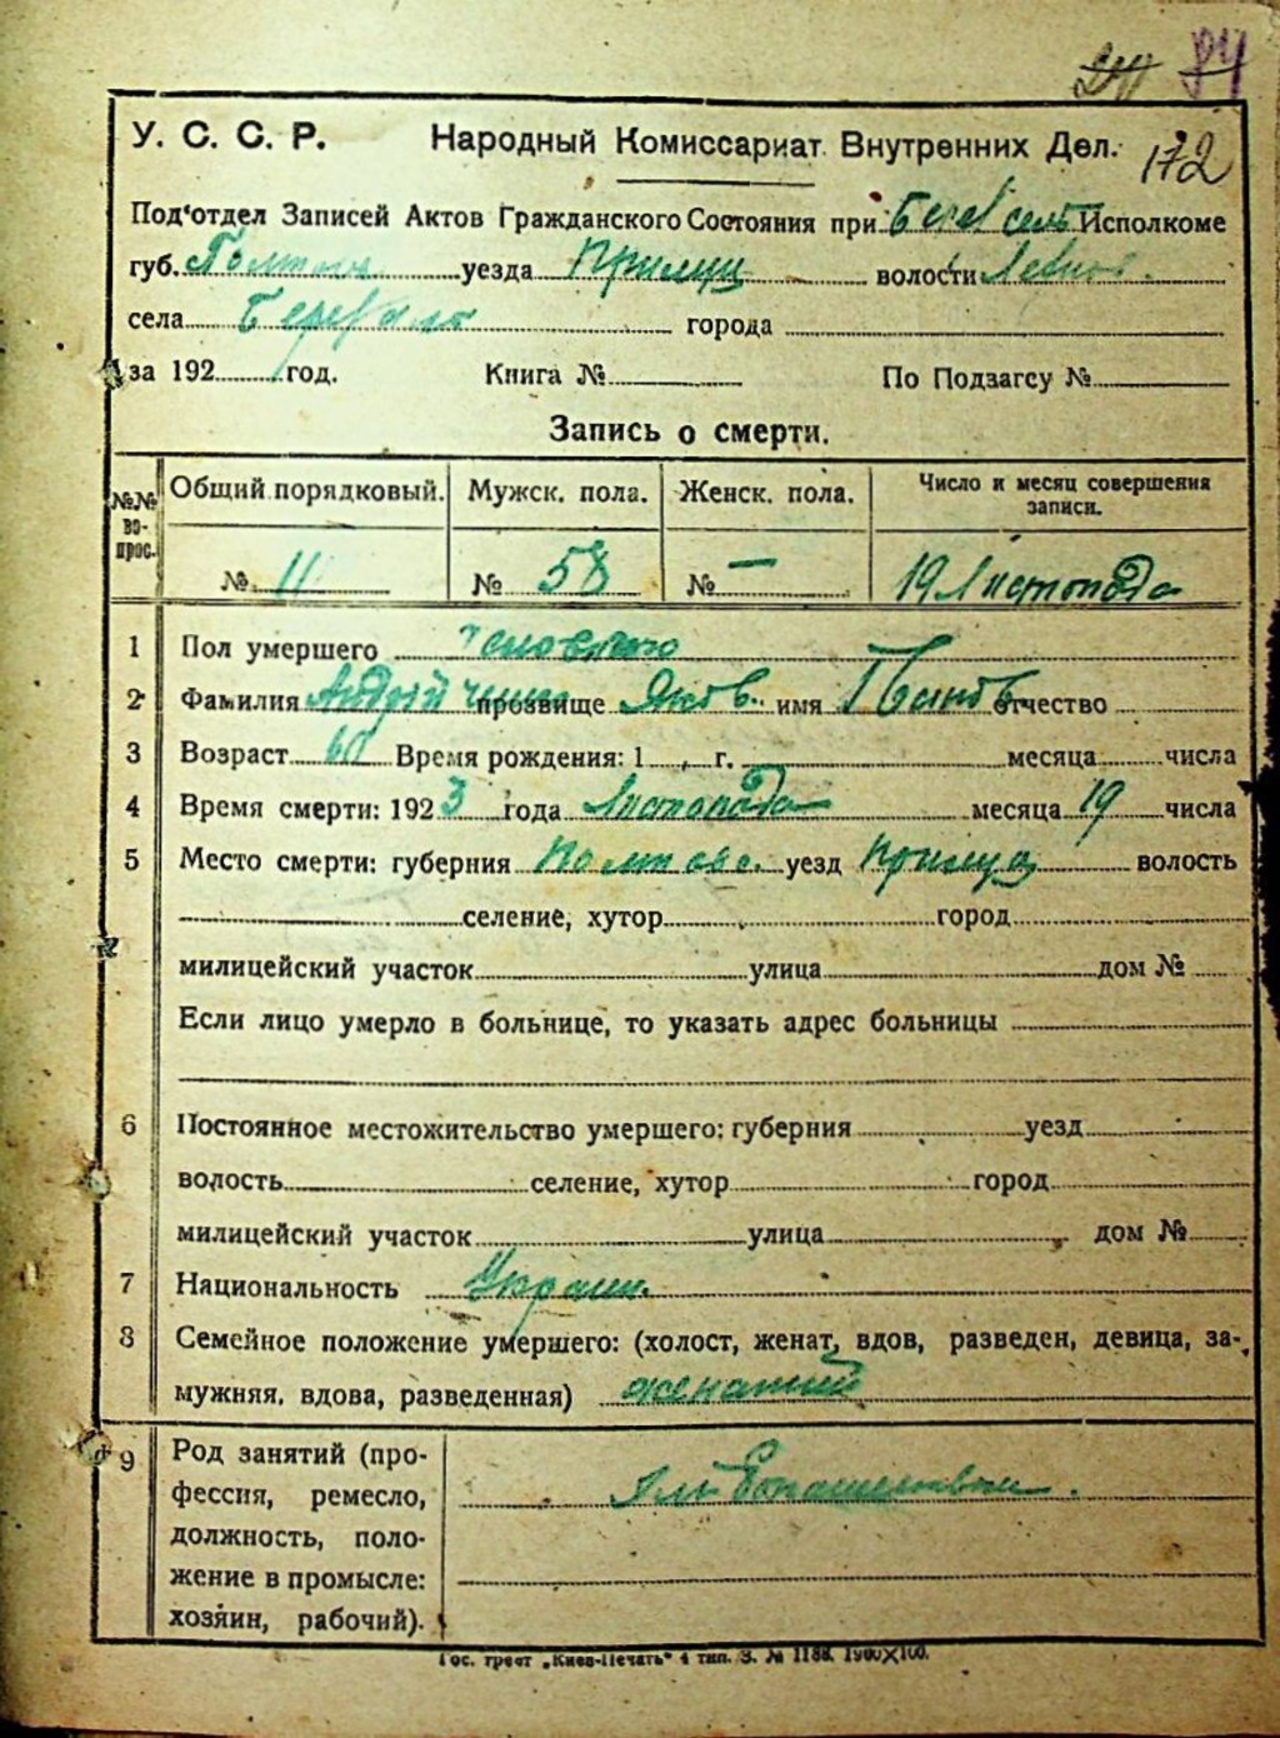 84
172
У. С. С. Р. Народный Комиссариат Внутренних Дел.
Под'отдел Записей Актов Гражданского Состояния при Исполкоме
губ. уезда Прилуц волости
села города
за 192 год. Книга № По Подзагсу №
Запись о смерти.
№№ вопрос. Общий порядковый. Мужск. пола. Женск. пола. Число и месяц совершения записи.
№ 11 № 58 № — 19 Листопада
1 Пол умершего
2 Фамилия прозвище Яков. имя отчество
3 Возраст 60 Время рождения: 1 г. месяца числа
4 Время смерти: 1923 года Листопада месяца 19 числа
5 Место смерти: губерния Полтавс. уезд Прилуц волость
селение, хутор город
милицейский участок улица дом №
Если лицо умерло в больнице, то указать адрес больницы
6 Постоянное местожительство умершего: губерния уезд
волость селение, хутор город
милицейский участок улица дом №
7 Национальность Украин.
8 Семейное положение умершего: (холост, женат, вдов, разведен, девица, за-
мужняя, вдова, разведенная) женатий
9 Род занятий (про-
фессия, ремесло,
должность, поло-
жение в промысле:
хозяин, рабочий).
Гос. трест „Киев-Печать" 4 тип. З. № 1188. 1900×100.